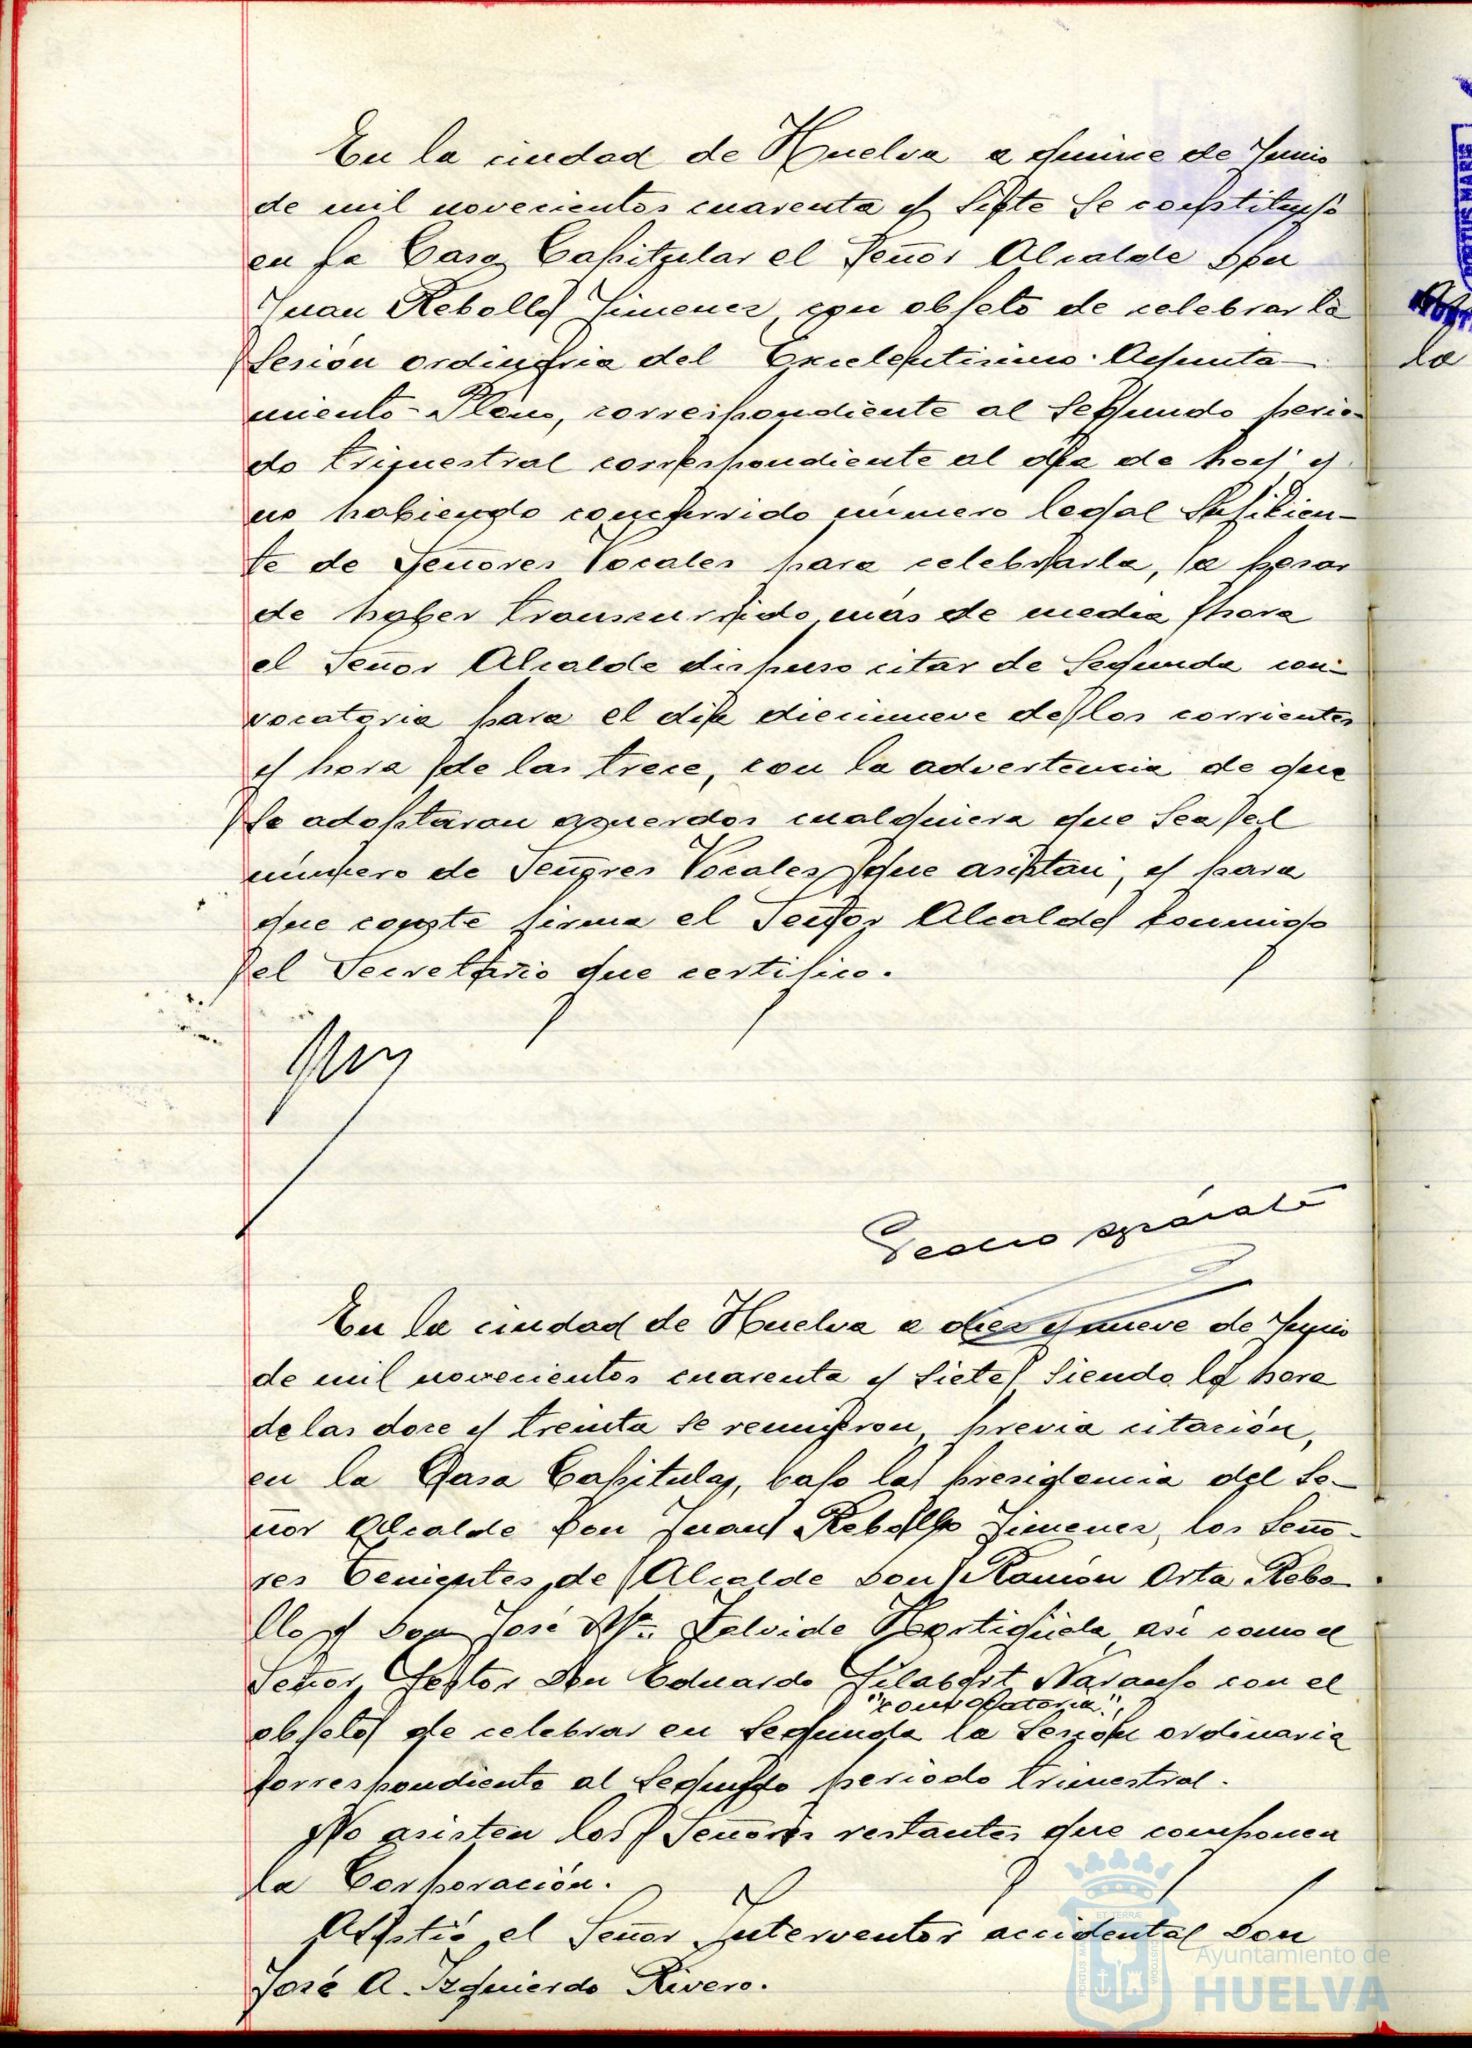 En la ciudad de Huelva a quince de Junio
de mil novecientos cuarenta y siete se constituyó
en la Casa Capitular el Señor Alcalde Don
Juan Rebollo Jimenez, con objeto de celebrar la
sesión ordinaria del Excelentisimo Ayunta-
miento-Pleno, correspondiente al segundo perio-
do trimestral correspondiente al dia de hoy y
no habiendo concurrido número legal suficien-
te de Señores Vocales para celebrarla, a pesar
de haber transcurrido más de media hora
el Señor Alcalde dispuso citar de segunda con-
vocatoria para el dia diecinueve de los corrientes
y hora de las trece, con la advertencia de que
se adoptaran acuerdos cualquiera que sea el
número de Señores Vocales que asistan; y para
que conste firma el Señor Alcalde conmigo
el Secretario que certifico.
Pedro
En la ciudad de Huelva a diez y nueve de Junio
de mil novecientos cuarenta y siete siendo la hora
de las doce y treinta se reunieron, previa citación,
en la Casa Capitular, bajo la presidencia del Se-
ñor Alcalde Don Juan Rebollo Jimenez, los Seño-
res Tenientes de Alcalde Don Ramón Orta Rebo-
llo y Don José Mª. Zalvide Hortigüela, asi como el
Señor Gestor Don Eduardo Gilabert Naranjo con el
"convocatoria",
objeto de celebrar en segunda la sesión ordinaria
correspondiente al segundo periodo trimestral.
No asisten los Señores restantes que componen
la Corporación.
Asistió el Señor Interventor accidental Don
José A. Izquierdo Rivero.
PORTUS MARIS
la
Ayuntamiento de
HUELVA